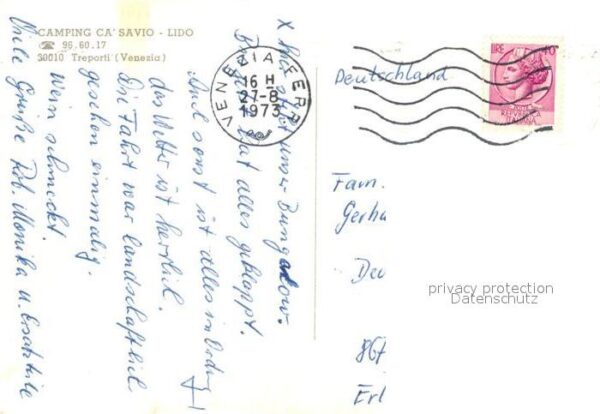 CAMPING CA' SAVIO - LIDO
☎ 96.60.17
30010 Treporti (Venezia)
X Hier steht unser Bungalow.
hat alles geklappt.
Und sonst ist alles in Ordng
das Wetter ist herrlich.
Die Fahrt war landschaftlich
gesehen einmalig.
Wein schmeckt.
Viele Grüße Rob. Monika u.
VENEZIA FERR.
16 H
27-8
1973
Deutschland
LIRE 40
REPVBBLICA
ITALIANA
Fam.
Gerha
Deu
privacy protection
Datenschutz
867
Erl